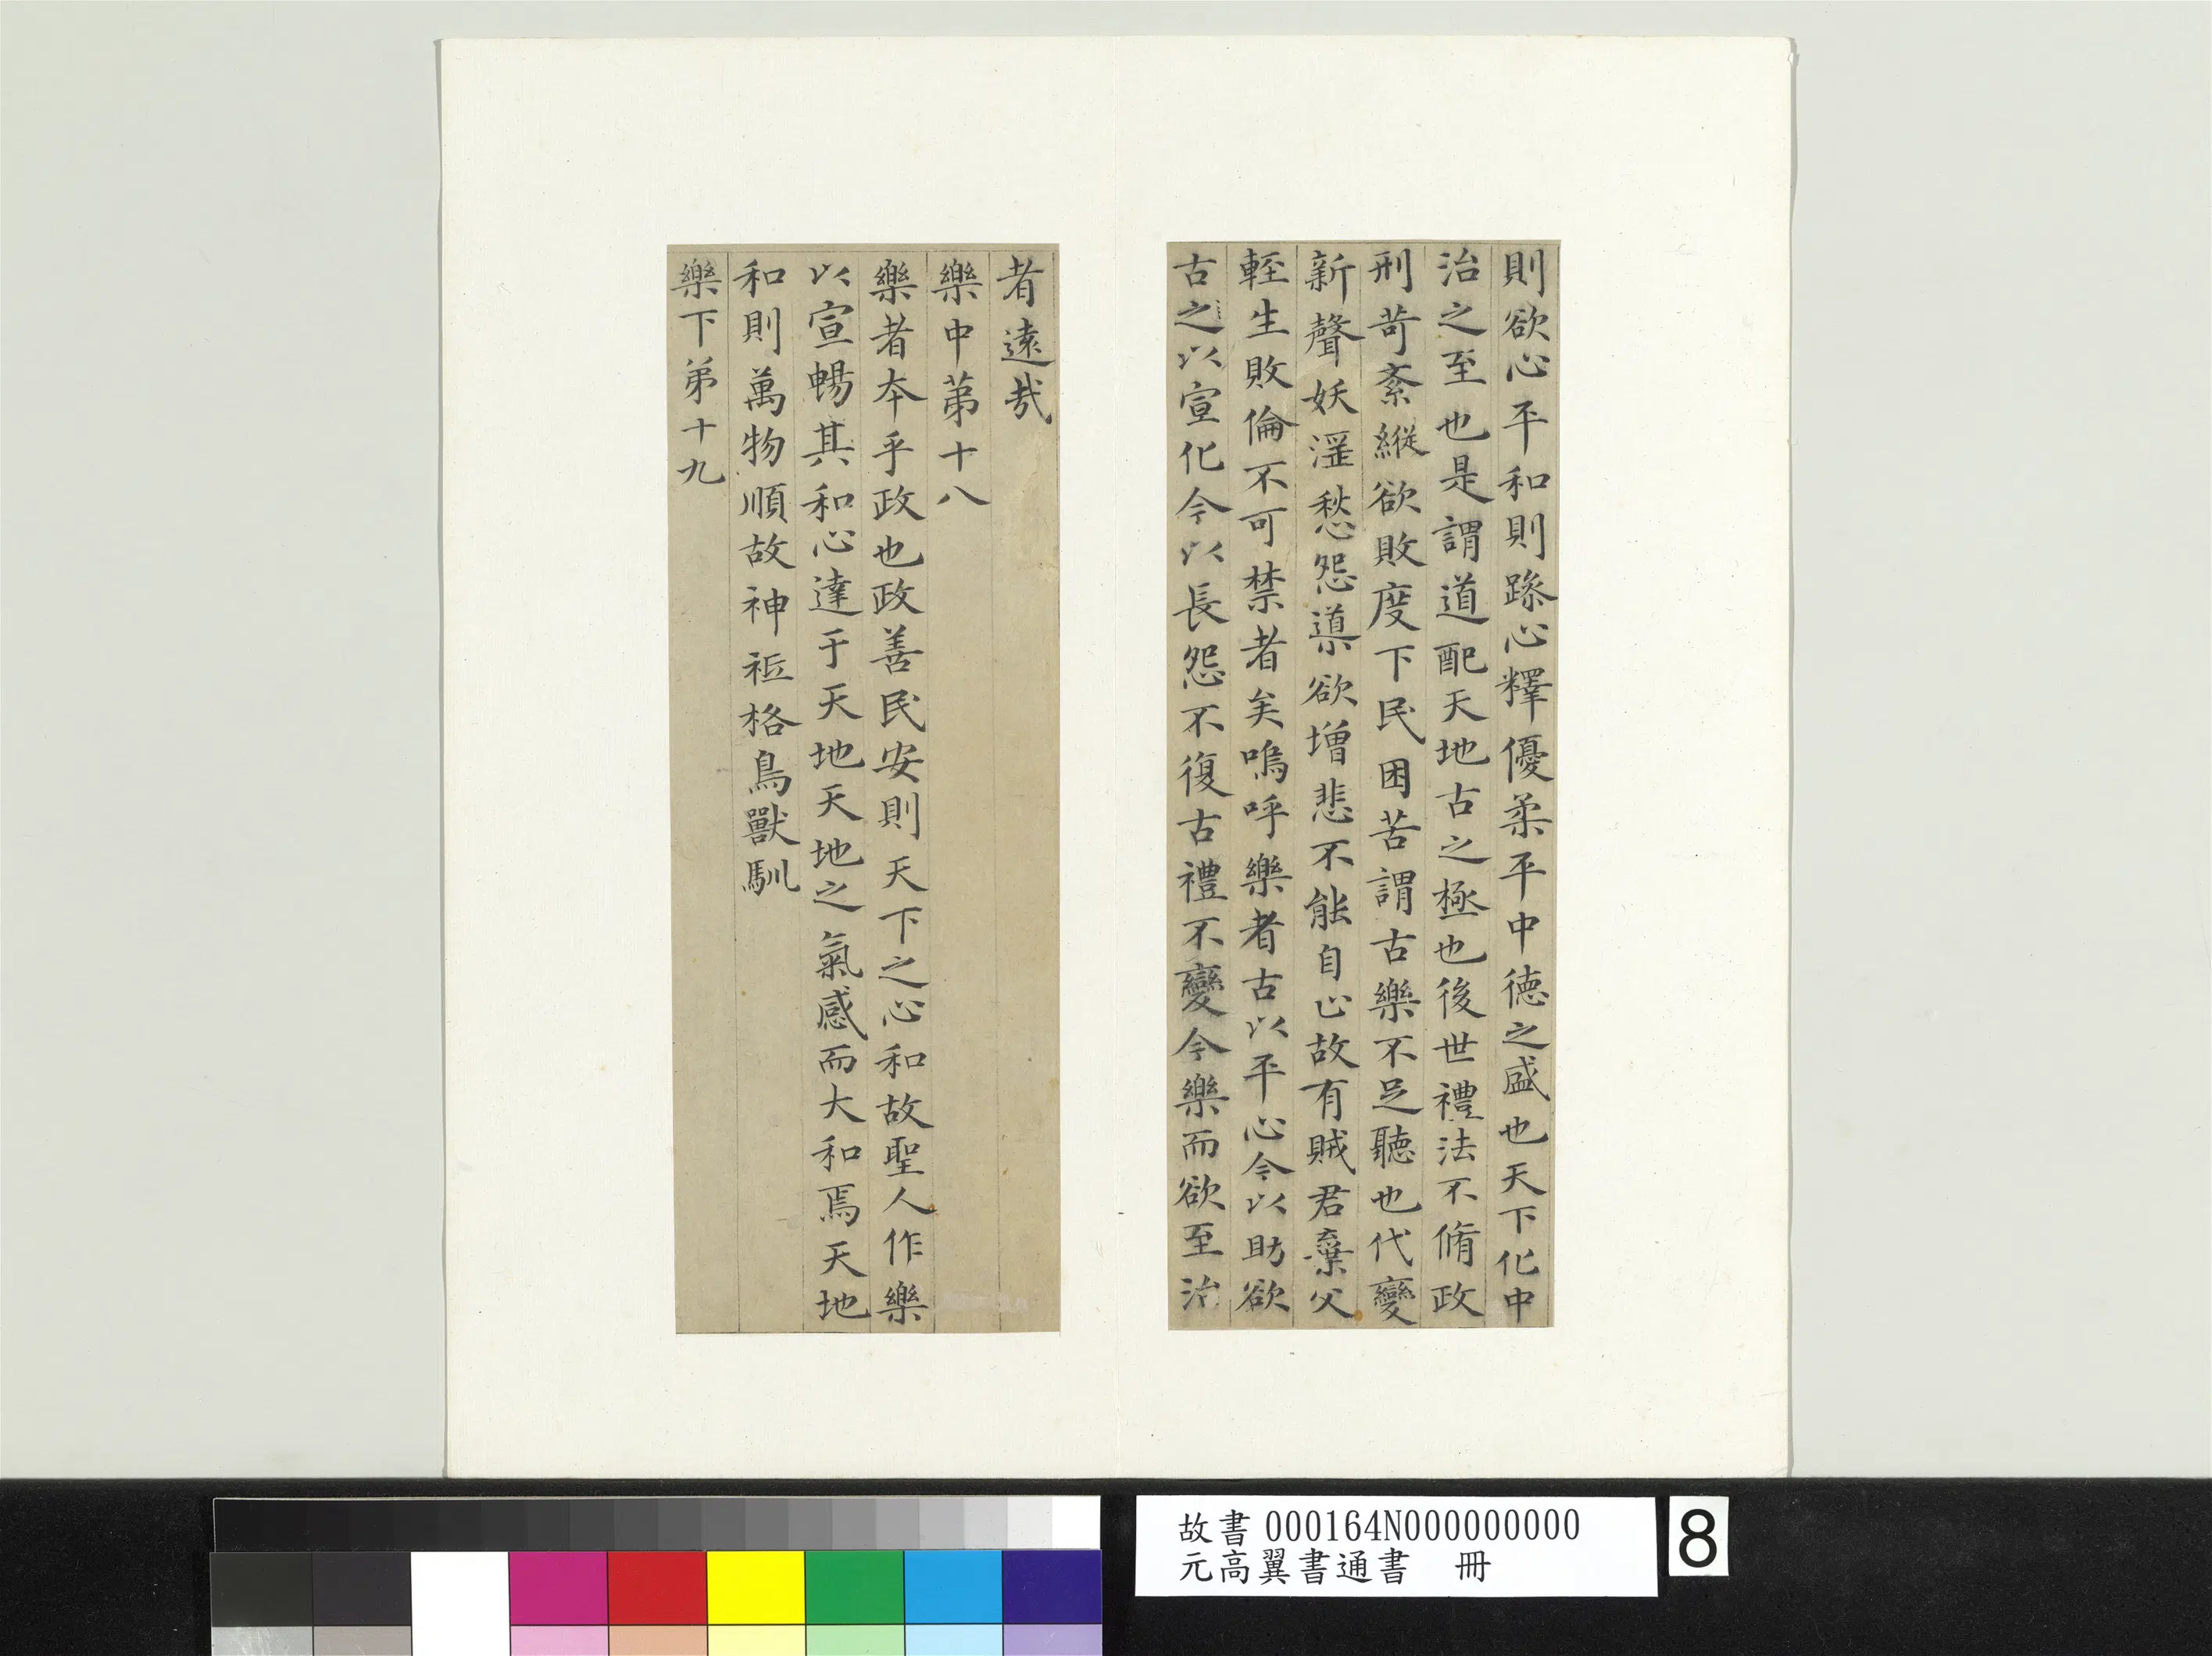 則欲心平和則躁心釋優柔平中德之盛也天下化中
治之至也是謂道配天地古之極也後世禮法不脩政
刑苛紊縱欲敗度下民困苦謂古樂不足聽也代變
新聲妖淫愁怨導欲增悲不能自止故有賊君棄父
輕生敗倫不可禁者矣嗚呼樂者古以平心今以助欲
古之以宣化今以長怨不復古禮不變今樂而欲至治
者遠哉
樂中第十八
樂者本乎政也政善民安則天下之心和故聖人作樂
以宣暢其和心達于天地天地之氣感而大和焉天地
和則萬物順故神祇格鳥獸馴
樂下第十九
故書 000164N000000000
元高翼書通書 冊
8